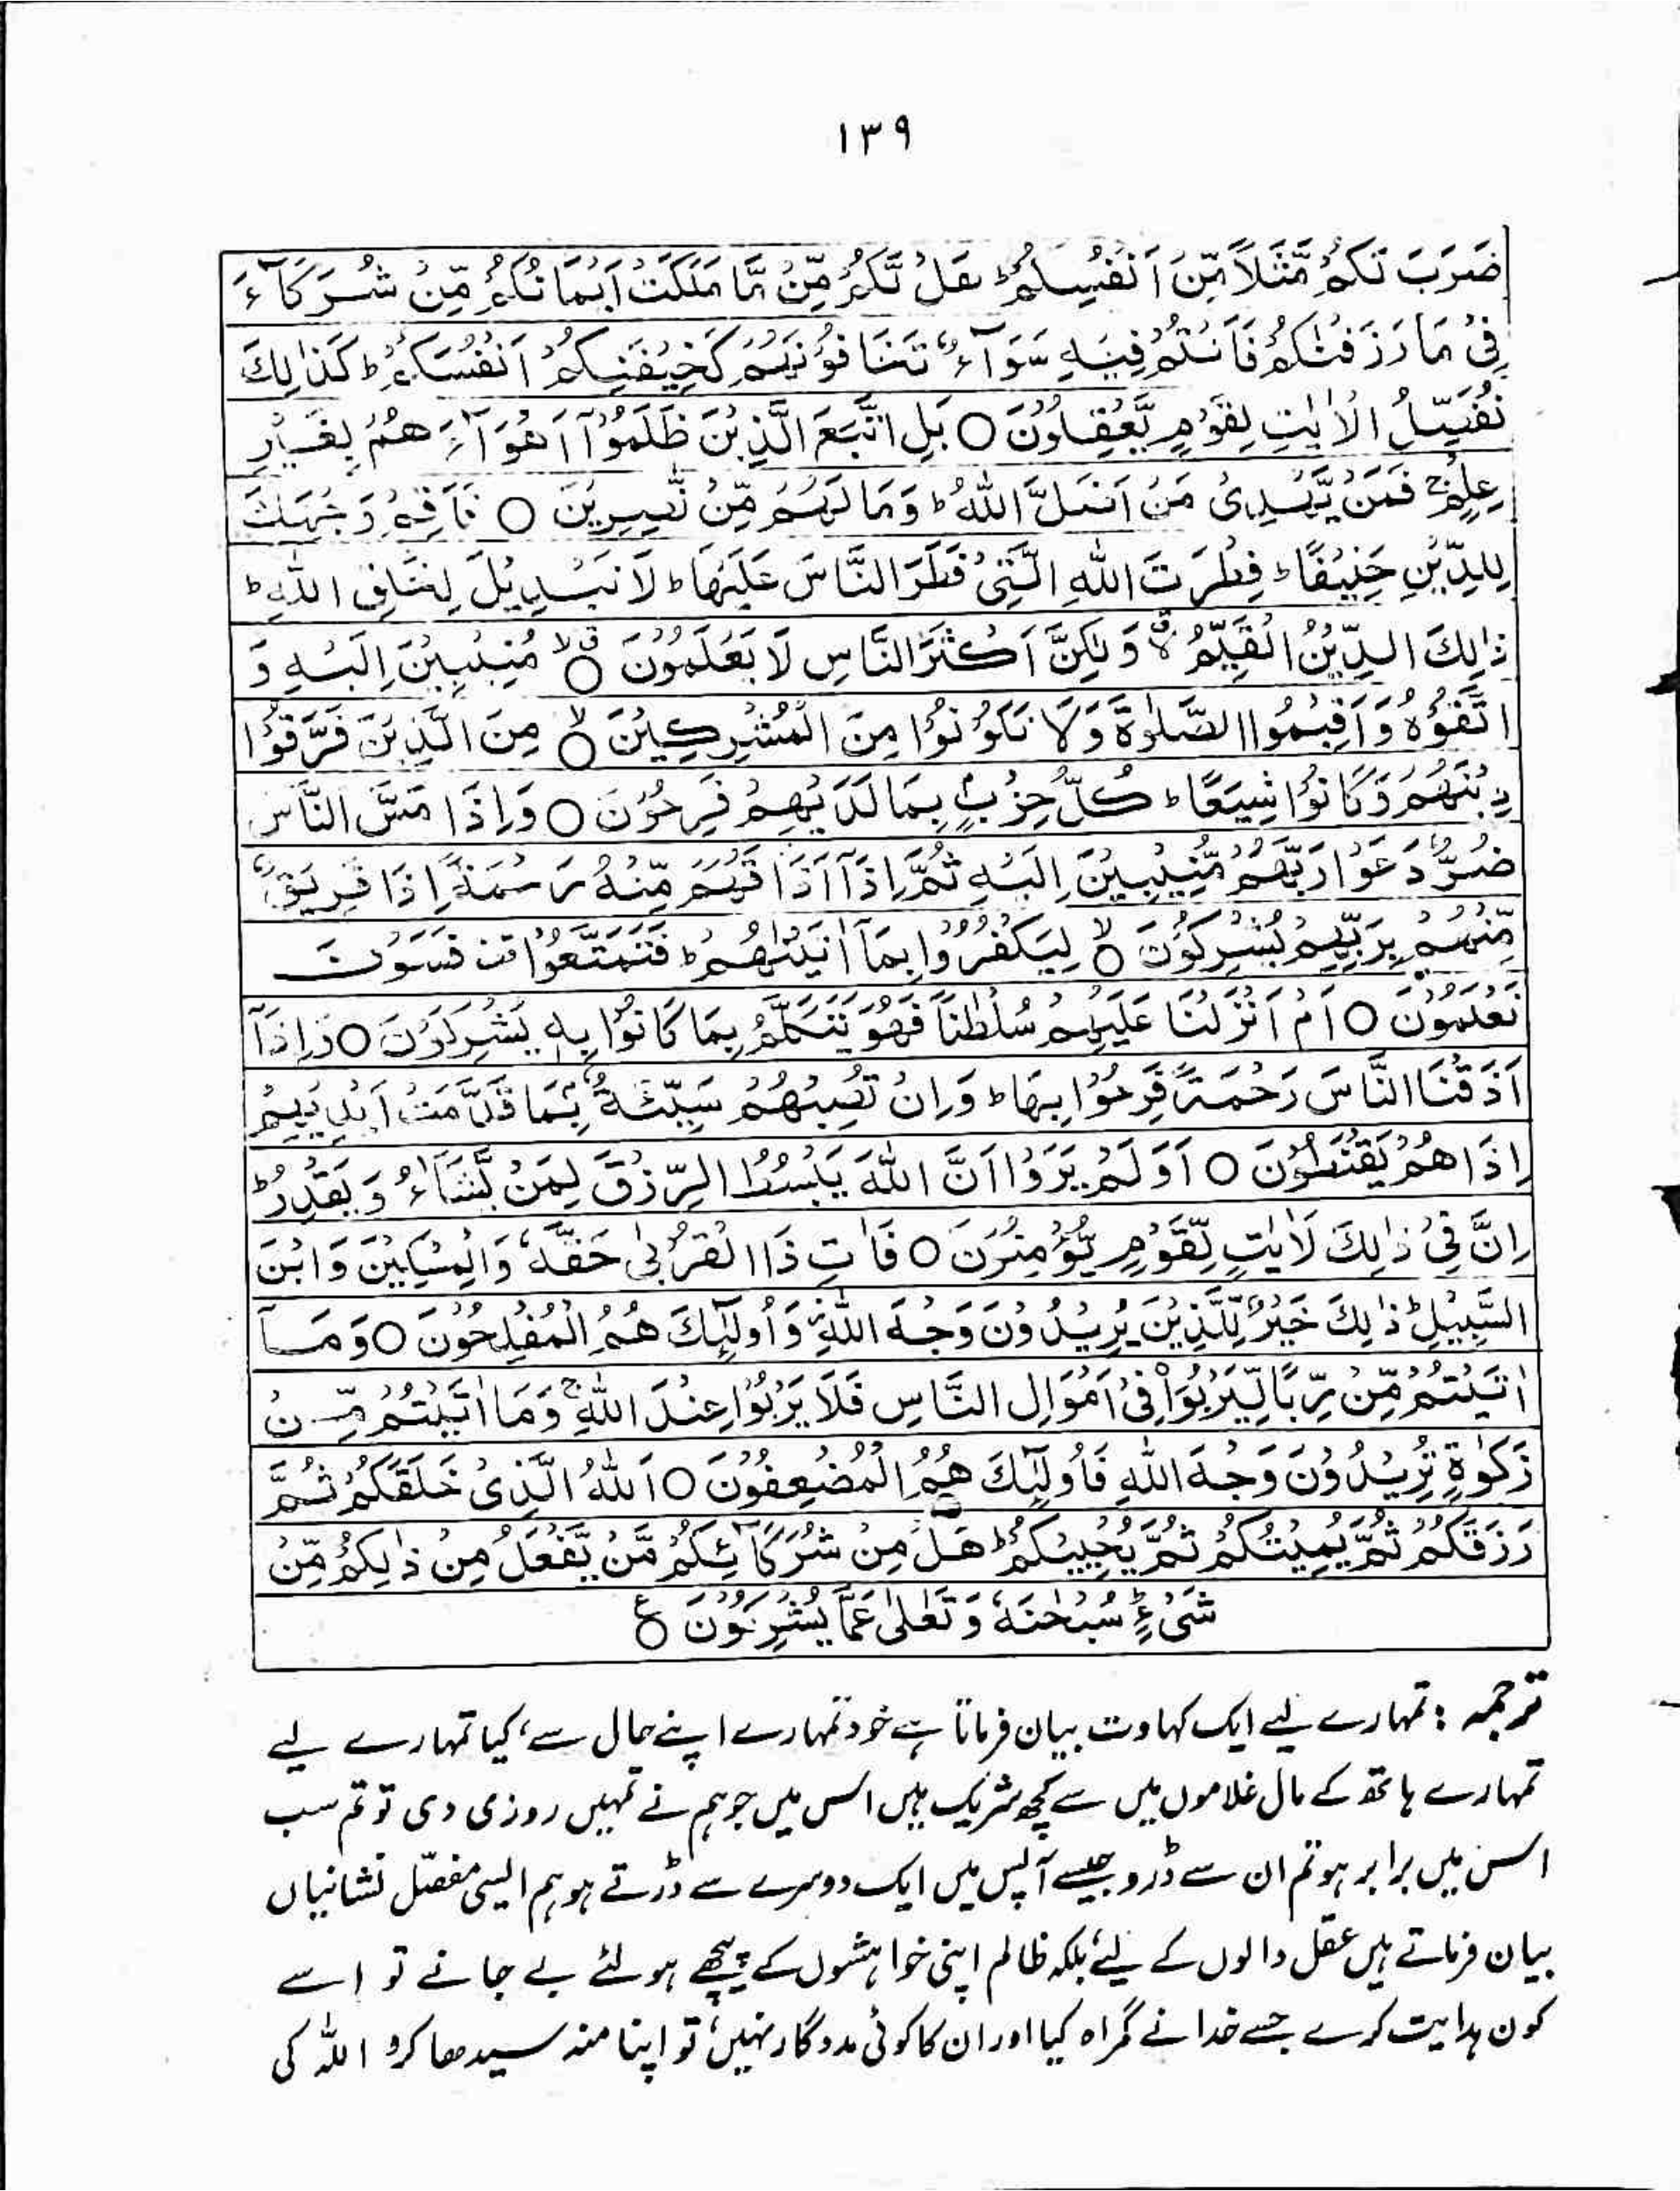 ۱۳۹
ضَرَبَ لَكُمْ مَّثَلًا مِّنْ اَنْفُسِكُمْ ؕ هَلْ لَّكُمْ مِّنْ مَّا مَلَكَتْ اَيْمَانُكُمْ مِّنْ شُرَكَآءَ
فِىْ مَا رَزَقْنٰكُمْ فَاَنْتُمْ فِيْهِ سَوَآءٌ تَخَافُوْنَهُمْ كَخِيْفَتِكُمْ اَنْفُسَكُمْ ؕ كَذٰلِكَ
نُفَصِّلُ الْاٰيٰتِ لِقَوْمٍ يَّعْقِلُوْنَ ○ بَلِ اتَّبَعَ الَّذِيْنَ ظَلَمُوْۤا اَهْوَآءَهُمْ بِغَيْرِ
عِلْمٍ ۚ فَمَنْ يَّهْدِىْ مَنْ اَضَلَّ اللّٰهُ ؕ وَمَا لَهُمْ مِّنْ نّٰصِرِيْنَ ○ فَاَقِمْ وَجْهَكَ
لِلدِّيْنِ حَنِيْفًا ؕ فِطْرَتَ اللّٰهِ الَّتِىْ فَطَرَ النَّاسَ عَلَيْهَا ؕ لَا تَبْدِيْلَ لِخَلْقِ اللّٰهِ ؕ
ذٰلِكَ الدِّيْنُ الْقَيِّمُ ۙ وَلٰكِنَّ اَكْثَرَ النَّاسِ لَا يَعْلَمُوْنَ ○ۙ مُنِيْبِيْنَ اِلَيْهِ وَ
اتَّقُوْهُ وَاَقِيْمُوا الصَّلٰوةَ وَلَا تَكُوْنُوْا مِنَ الْمُشْرِكِيْنَ ○ۙ مِنَ الَّذِيْنَ فَرَّقُوْا
دِيْنَهُمْ وَكَانُوْا شِيَعًا ؕ كُلُّ حِزْبٍۭ بِمَا لَدَيْهِمْ فَرِحُوْنَ ○ وَاِذَا مَسَّ النَّاسَ
ضُرٌّ دَعَوْا رَبَّهُمْ مُّنِيْبِيْنَ اِلَيْهِ ثُمَّ اِذَاۤ اَذَاقَهُمْ مِّنْهُ رَحْمَةً اِذَا فَرِيْقٌ
مِّنْهُمْ بِرَبِّهِمْ يُشْرِكُوْنَ ○ۙ لِيَكْفُرُوْا بِمَاۤ اٰتَيْنٰهُمْ ؕ فَتَمَتَّعُوْا قف فَسَوْفَ
تَعْلَمُوْنَ ○ اَمْ اَنْزَلْنَا عَلَيْهِمْ سُلْطٰنًا فَهُوَ يَتَكَلَّمُ بِمَا كَانُوْا بِهٖ يُشْرِكُوْنَ ○ وَاِذَاۤ
اَذَقْنَا النَّاسَ رَحْمَةً فَرِحُوْا بِهَا ؕ وَاِنْ تُصِبْهُمْ سَيِّئَةٌۢ بِمَا قَدَّمَتْ اَيْدِيْهِمْ
اِذَا هُمْ يَقْنَطُوْنَ ○ اَوَلَمْ يَرَوْا اَنَّ اللّٰهَ يَبْسُطُ الرِّزْقَ لِمَنْ يَّشَآءُ وَيَقْدِرُ ؕ
اِنَّ فِىْ ذٰلِكَ لَاٰيٰتٍ لِّقَوْمٍ يُّؤْمِنُوْنَ ○ فَاٰتِ ذَا الْقُرْبٰى حَقَّهٗ وَالْمِسْكِيْنَ وَابْنَ
السَّبِيْلِ ؕ ذٰلِكَ خَيْرٌ لِّلَّذِيْنَ يُرِيْدُوْنَ وَجْهَ اللّٰهِ ۫ وَاُولٰٓئِكَ هُمُ الْمُفْلِحُوْنَ ○ وَمَاۤ
اٰتَيْتُمْ مِّنْ رِّبًا لِّيَرْبُوَا۟ فِىْۤ اَمْوَالِ النَّاسِ فَلَا يَرْبُوْا عِنْدَ اللّٰهِ ۚ وَمَاۤ اٰتَيْتُمْ مِّنْ
زَكٰوةٍ تُرِيْدُوْنَ وَجْهَ اللّٰهِ فَاُولٰٓئِكَ هُمُ الْمُضْعِفُوْنَ ○ اَللّٰهُ الَّذِىْ خَلَقَكُمْ ثُمَّ
رَزَقَكُمْ ثُمَّ يُمِيْتُكُمْ ثُمَّ يُحْيِيْكُمْ ؕ هَلْ مِنْ شُرَكَآئِكُمْ مَّنْ يَّفْعَلُ مِنْ ذٰلِكُمْ مِّنْ
شَىْءٍ ؕ سُبْحٰنَهٗ وَتَعٰلٰى عَمَّا يُشْرِكُوْنَ ○ ع
ترجمہ : تمہارے لیے ایک کہاوت بیان فرماتا ہے خود تمہارے اپنے حال سے، کیا تمہارے لیے
تمہارے ہاتھ کے مال غلاموں میں سے کچھ شریک ہیں اس میں جو ہم نے تمہیں روزی دی تو تم سب
اس میں برابر ہو تم ان سے ڈرو جیسے آپس میں ایک دوسرے سے ڈرتے ہو ہم ایسی مفصّل نشانیاں
بیان فرماتے ہیں عقل والوں کے لیے، بلکہ ظالم اپنی خواہشوں کے پیچھے ہولئے بے جانے تو اسے
کون ہدایت کرے جسے خدا نے گمراہ کیا اور ان کا کوئی مددگار نہیں، تو اپنا منہ سیدھا کرو اللہ کی